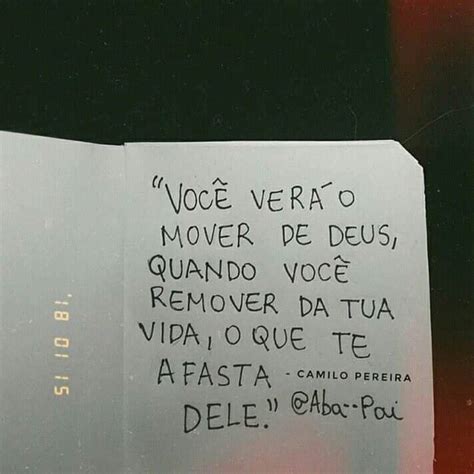 "VOCÊ VERÁ O
MOVER DE DEUS,
QUANDO VOCÊ
REMOVER DA TUA
VIDA, O QUE TE
AFASTA - CAMILO PEREIRA
DELE." @Aba--Pai
51 01 81'